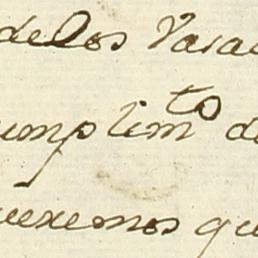 delos Vasa
umplim^to de
uexemos qu